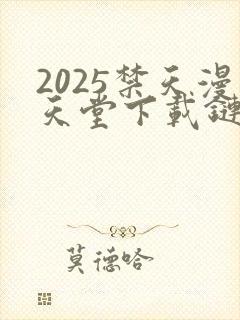 2025禁天漫
天堂下載鏈
莫德哈